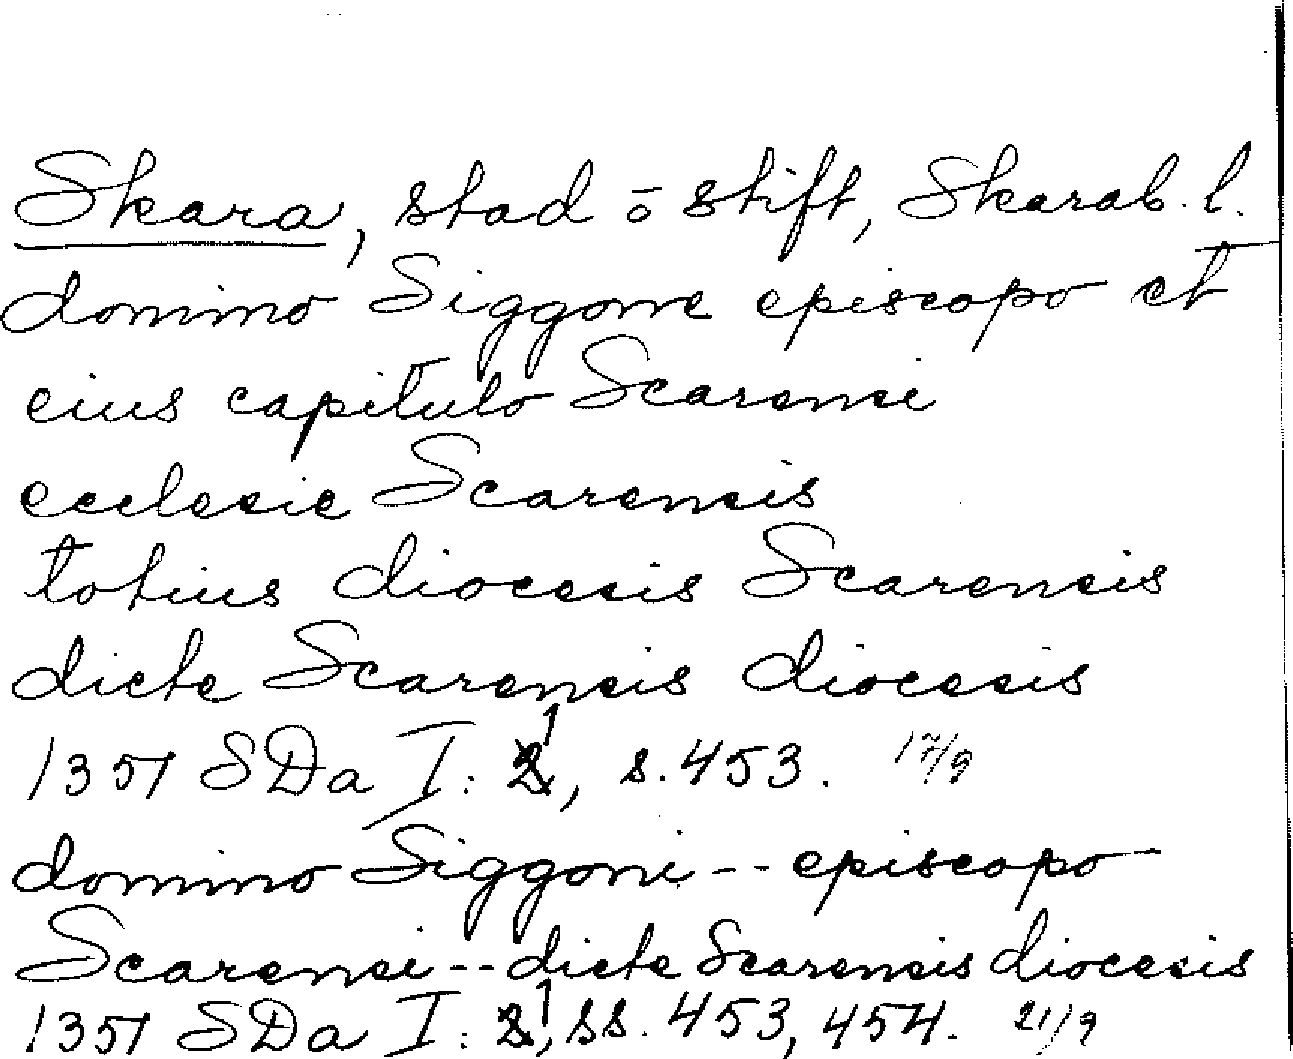 Skara, stad o stift, Skarab. l.
domino Siggone episcopo et
eius capitulo Scarensi
ecclesie Scarensis
totius diocesis Scarensis
dicte Scarensis diocesis
1351 SDa I: 1, s. 453. 17/9
domino Siggoni -- episcopo
Scarensi -- dicte Scarensis diocesis
1351 SDa I: 1, ss. 453, 454. 21/9